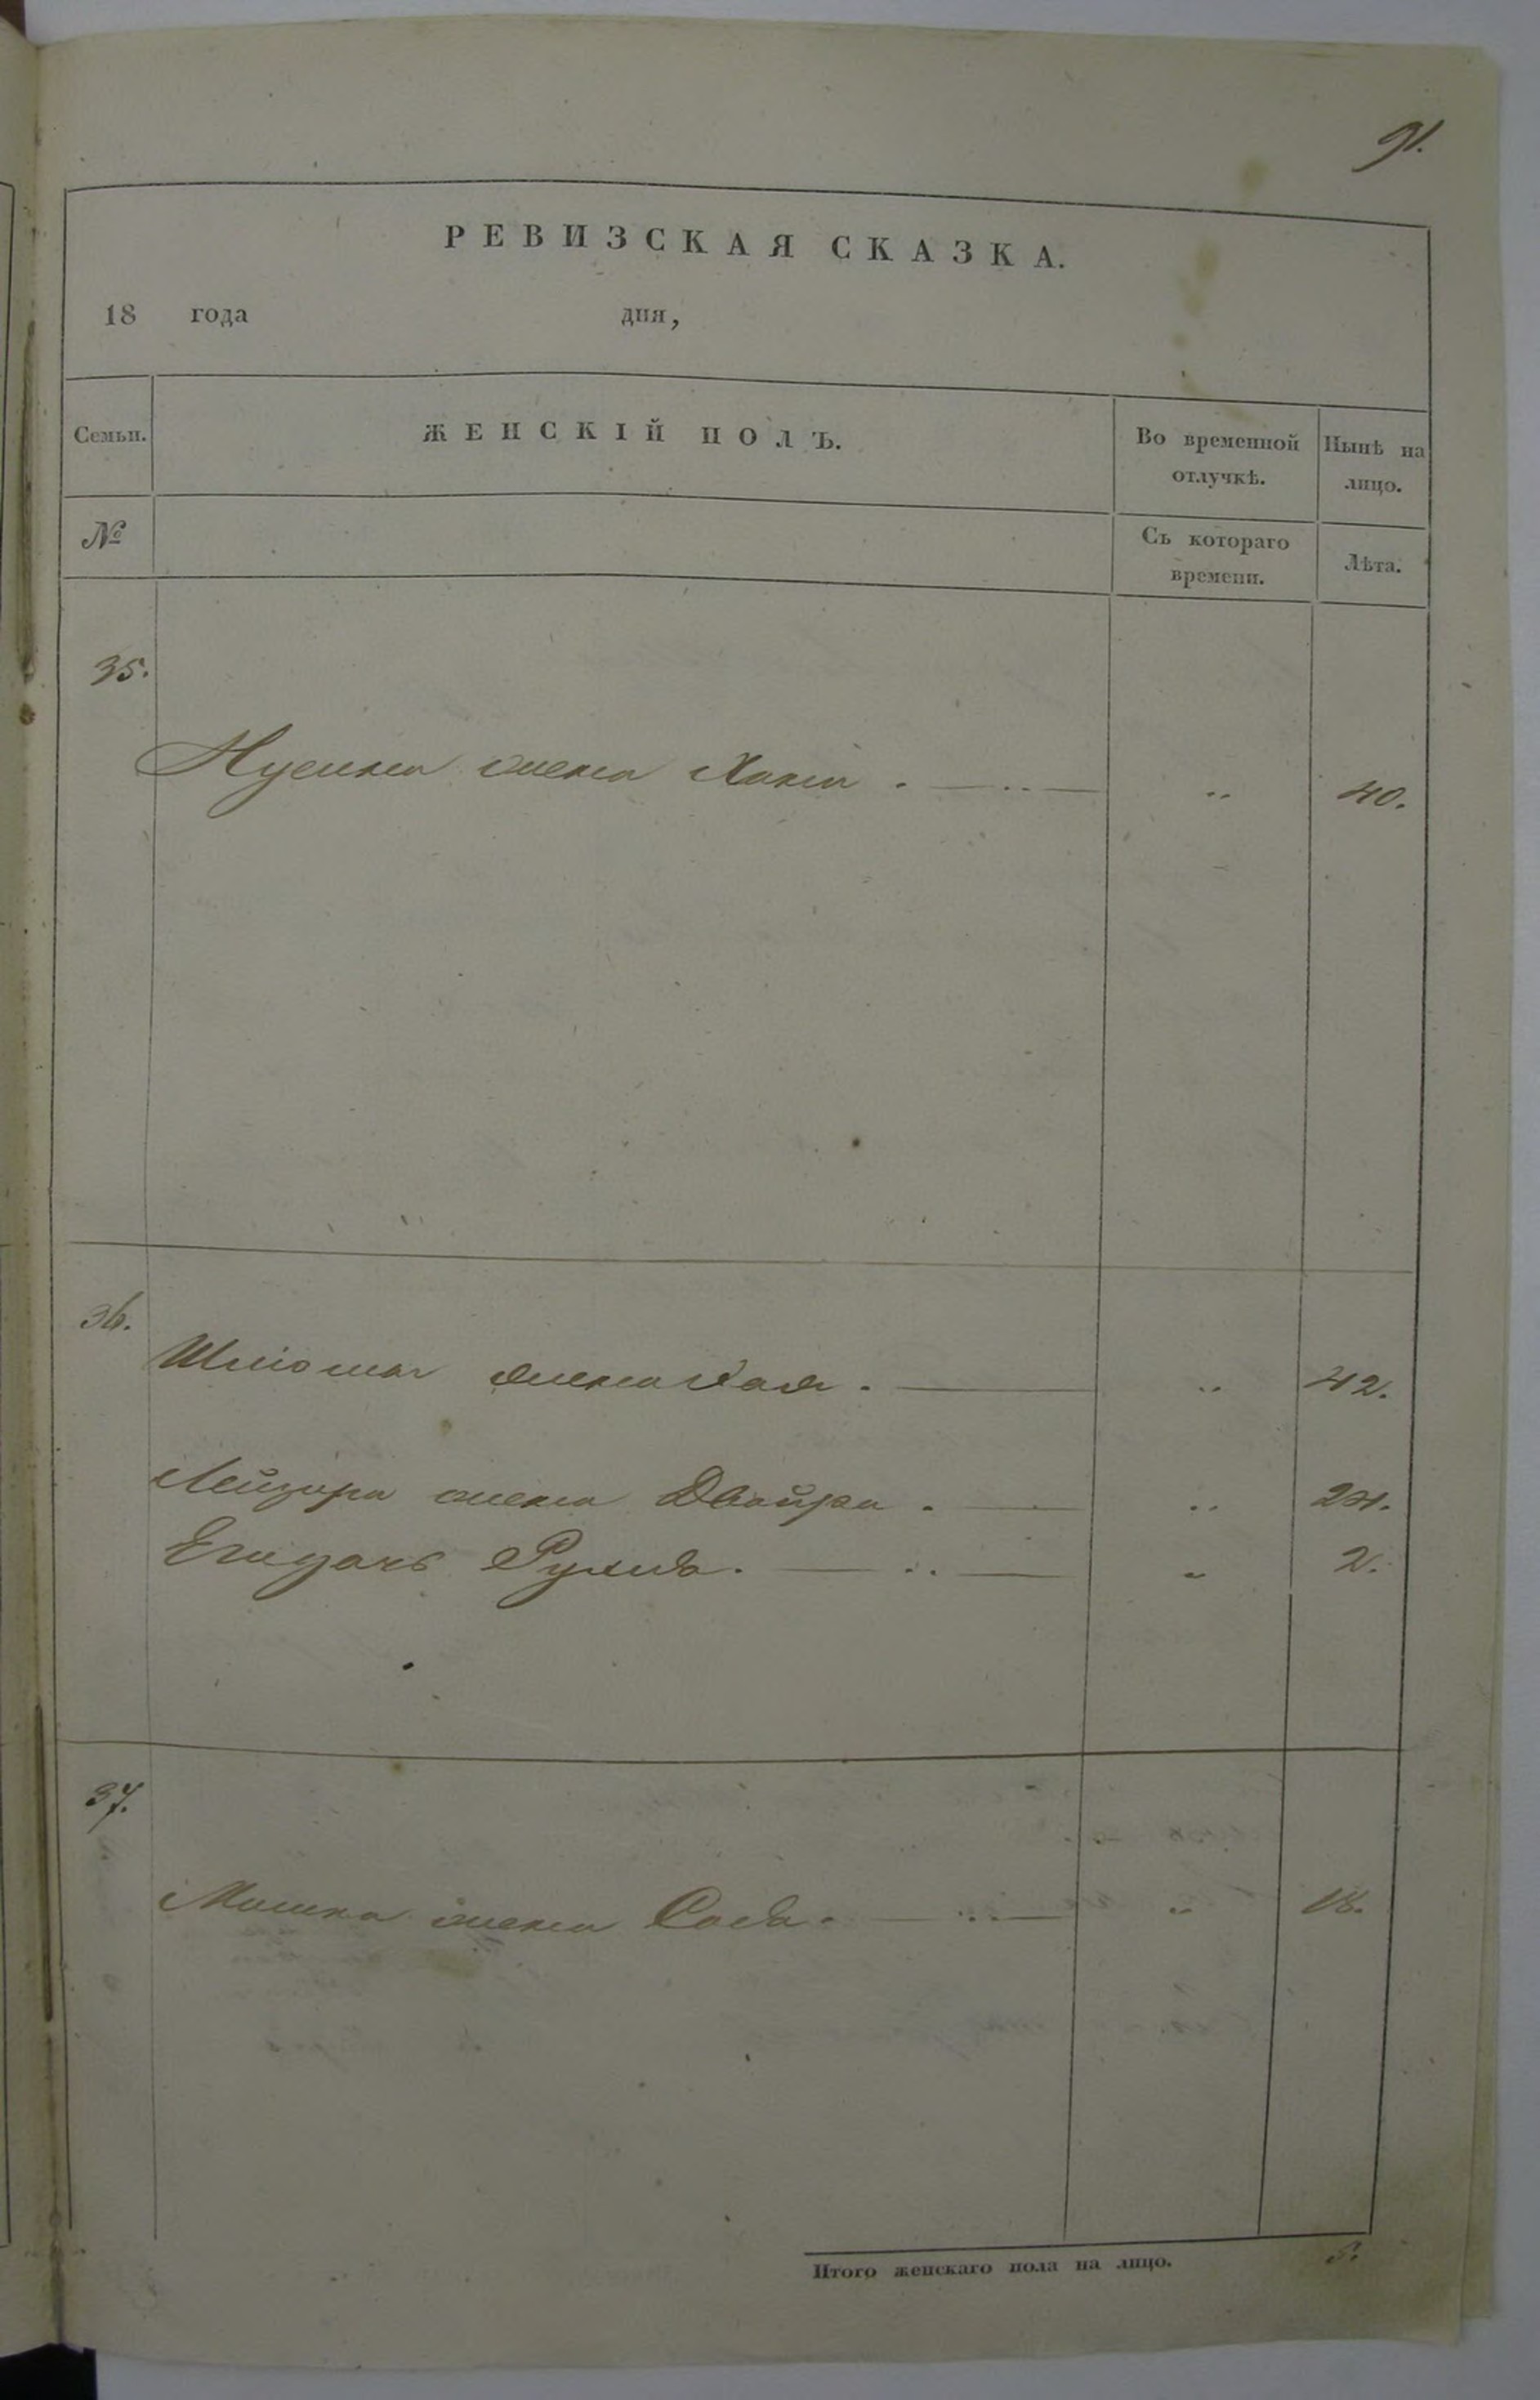 91.
РЕВИЗСКАЯ СКАЗКА.
18 года дня,
Семьи. ЖЕНСКІЙ ПОЛЪ. Во временной отлучкѣ. Нынѣ на лицо.
№ Съ котораго времени. Лѣта.
35.
жена .. 40.
36.
жена Хая. .. 42.
Лейзера жена Двойра. .. 24.
Егодочь „ 2.
37.
Мошка жена Сося. „ 18.
Итого женскаго пола на лицо. 5.